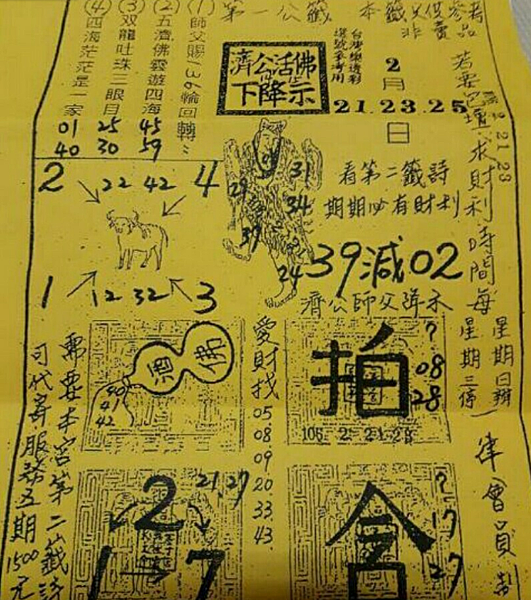 第一公籤
本籤只供參考
非賣品
(1)師父賜136輪回轉
(2)五濟佛雲遊四海
(3)双龍吐珠三眼目
(4)四海茫茫是一家
01 25 45
40 30 59
濟公活佛
下降示
台灣樂透彩
選號參考用
2
月
21.23.25
日
看第二籤詩
期期必有財利
39減02
濟公師父降示
2 22 42 4
1 12 32 3
29 31
34
39
24
酒 佛
40
41
42
愛財找
05
08
09
20
33
43
拍
?
08
28
105. 2. 21 23
2
21,27
1 7
含
?
17
27
求財利時間每
星期日辦
星期三停
會員
需要本宮第二籤詩
可代寄服務五期1500元